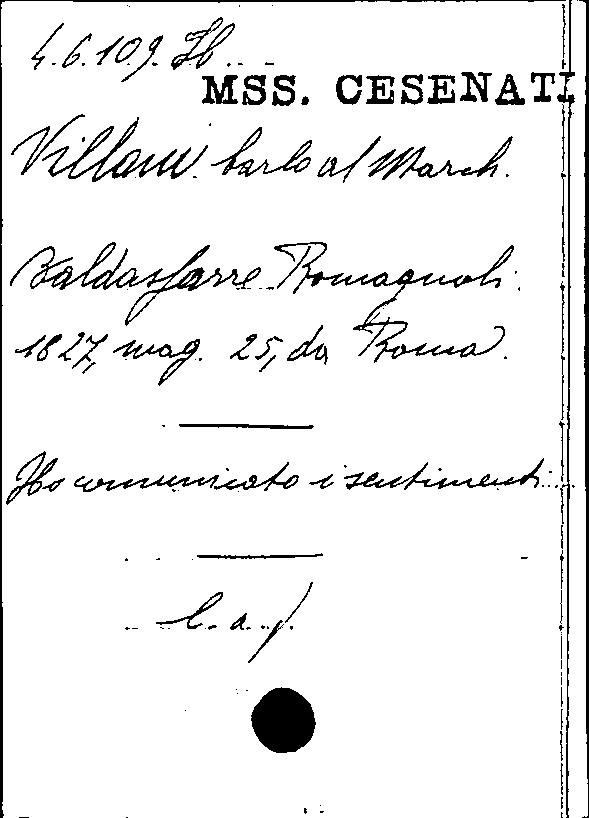 4.6.109. Ib
MSS. CESENATI
Villani Carlo al March.
Baldassarre Romagnoli.
1827, mag. 25, da Roma.
Ho comunicato i sentimenti...
l. a.